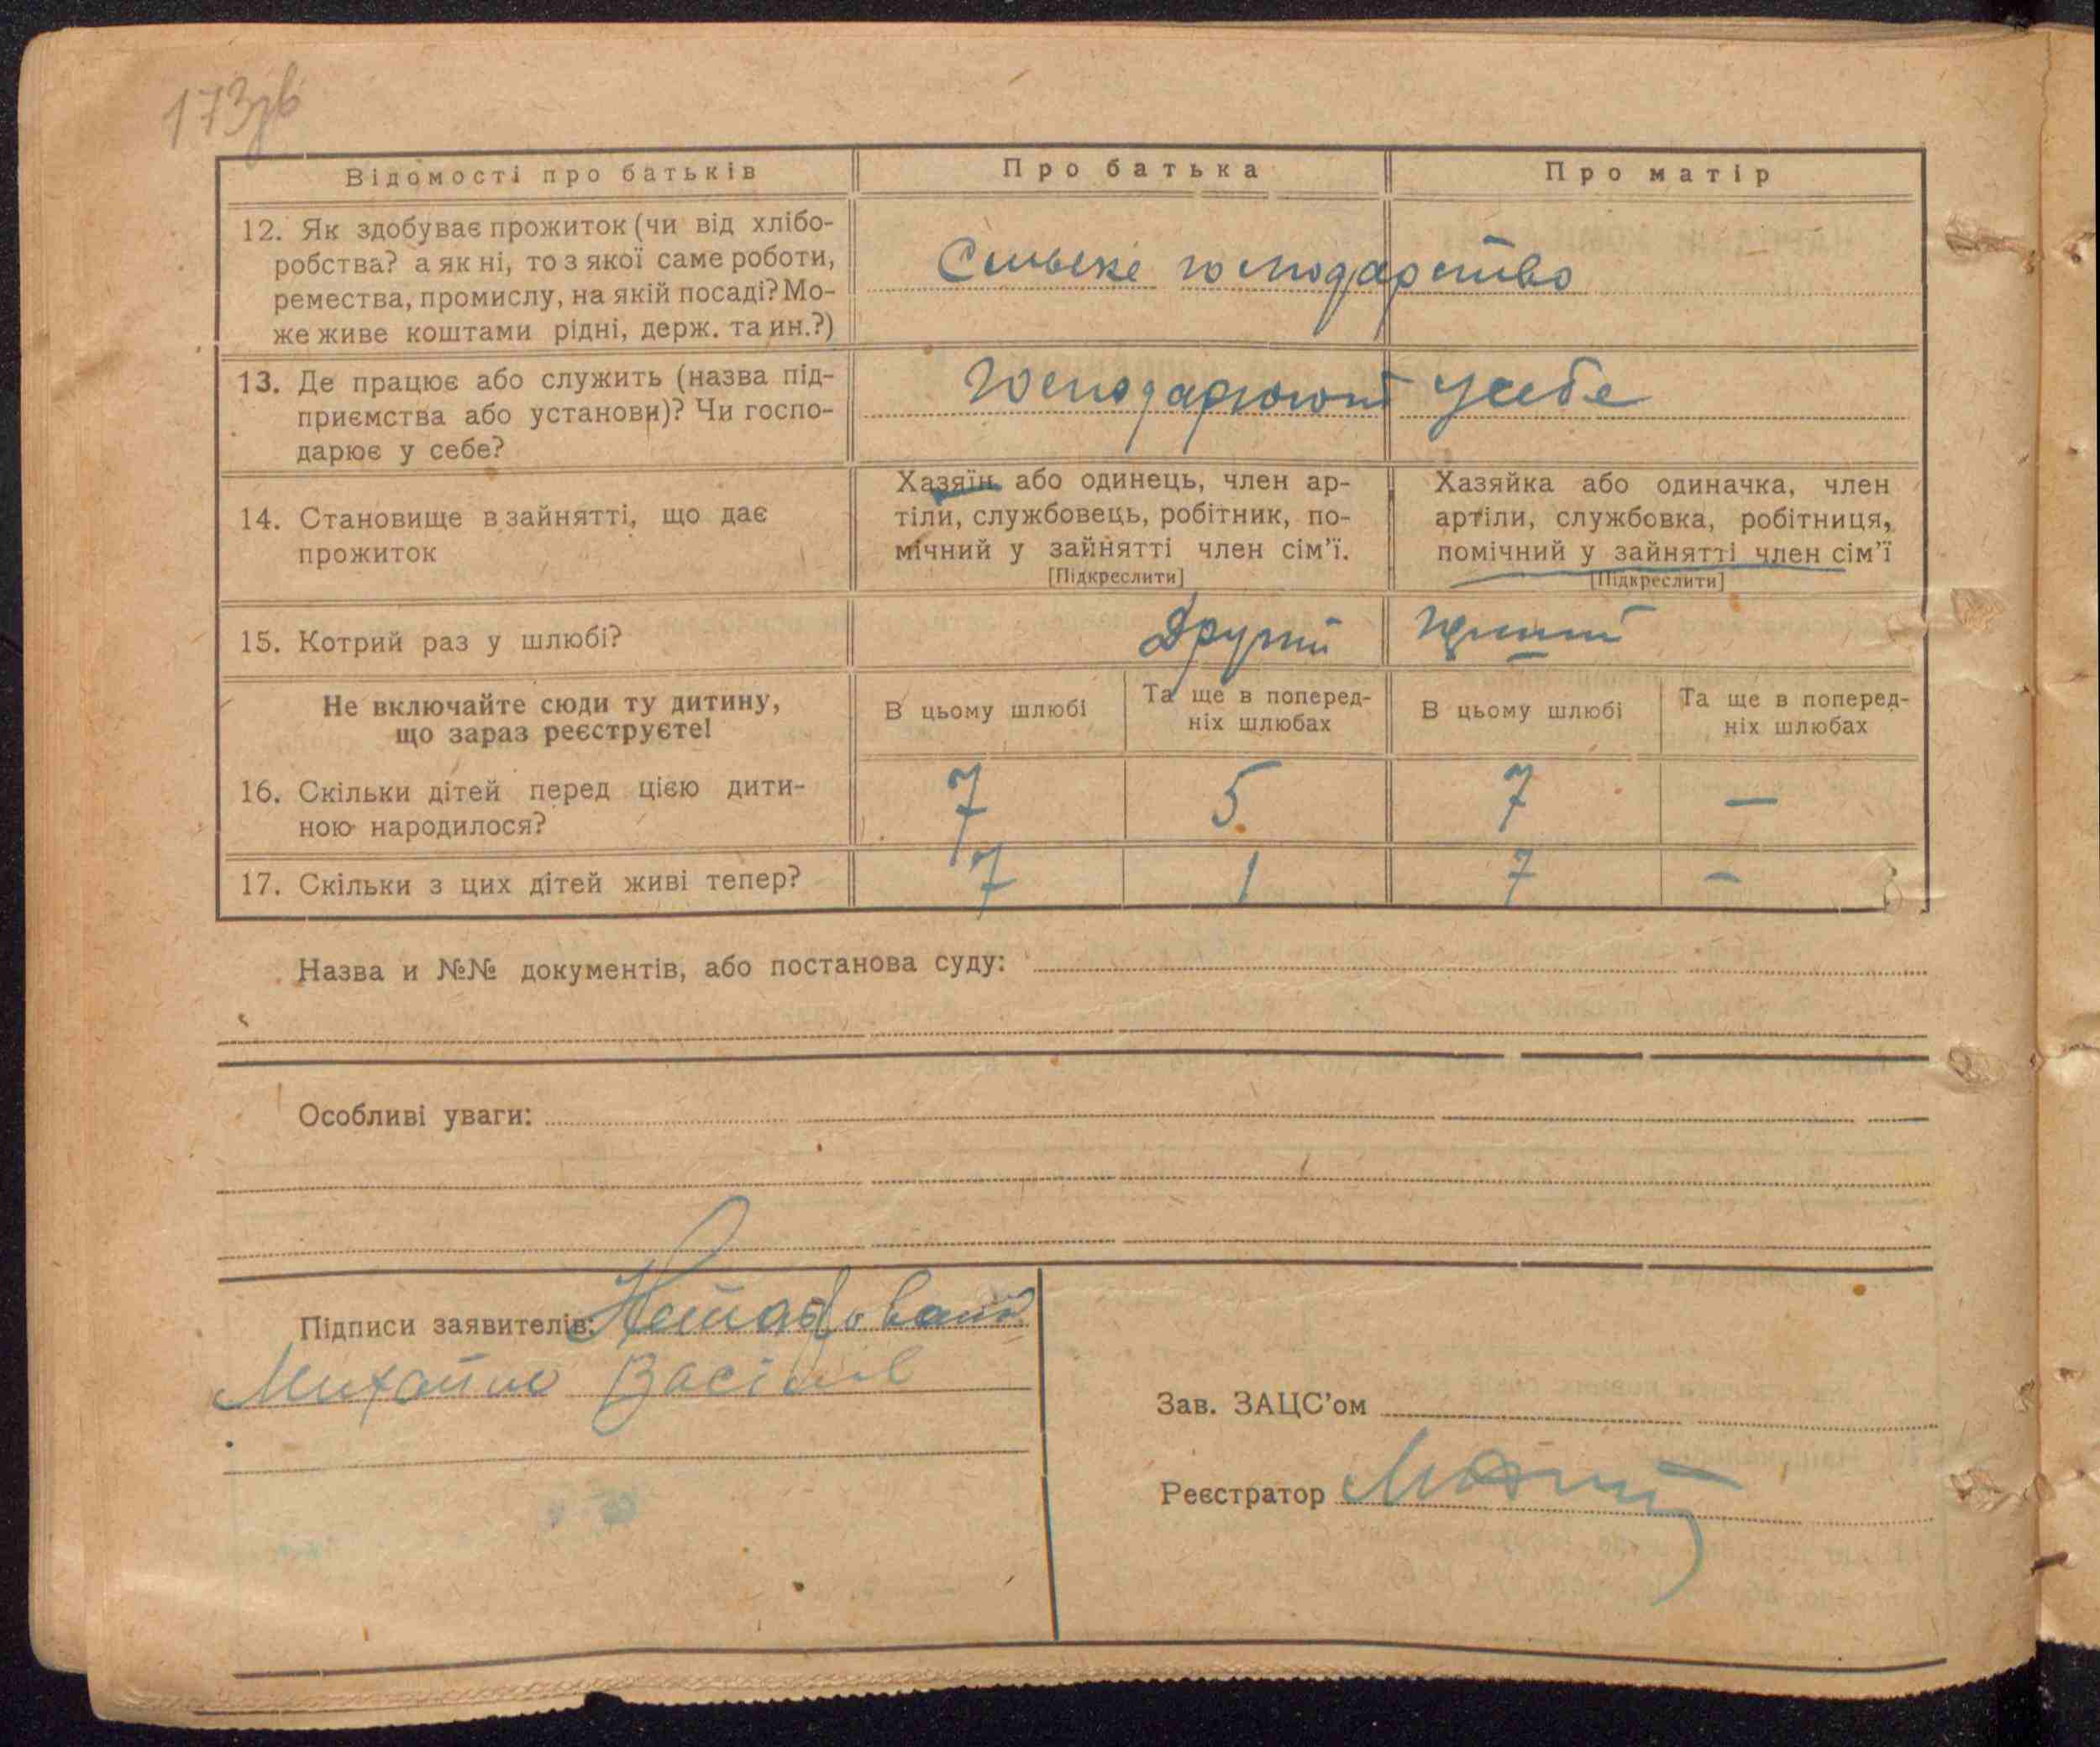 173зв
Відомості про батьків
Про батька
Про матір
12. Як здобуває прожиток (чи від хлібо-
робства? а як ні, то з якої саме роботи,
ремества, промислу, на якій посаді? Мо-
же живе коштами рідні, держ. та ин.?)
Сильске господарство
13. Де працює або служить (назва під-
приємства або установи)? Чи госпо-
дарює у себе?
Господарюють у себе
14. Становище в зайнятті, що дає
прожиток
Хазяїн або одинець, член ар-
тіли, службовець, робітник, по-
мічний у зайнятті член сім'ї.
[Підкреслити]
Хазяйка або одиначка, член
артіли, службовка, робітниця,
помічний у зайнятті член сім'ї
[Підкреслити]
15. Котрий раз у шлюбі?
Другий
Не включайте сюди ту дитину,
що зараз реєструєте!
В цьому шлюбі
Та ще в поперед-
ніх шлюбах
В цьому шлюбі
Та ще в поперед-
ніх шлюбах
16. Скільки дітей перед цією дити-
ною народилося?
7 5 7 —
17. Скільки з цих дітей живі тепер?
7 1 7 —
Назва и №№ документів, або постанова суду:
Особливі уваги:
Підписи заявителів:
Михайло
Зав. ЗАЦС'ом
Реєстратор